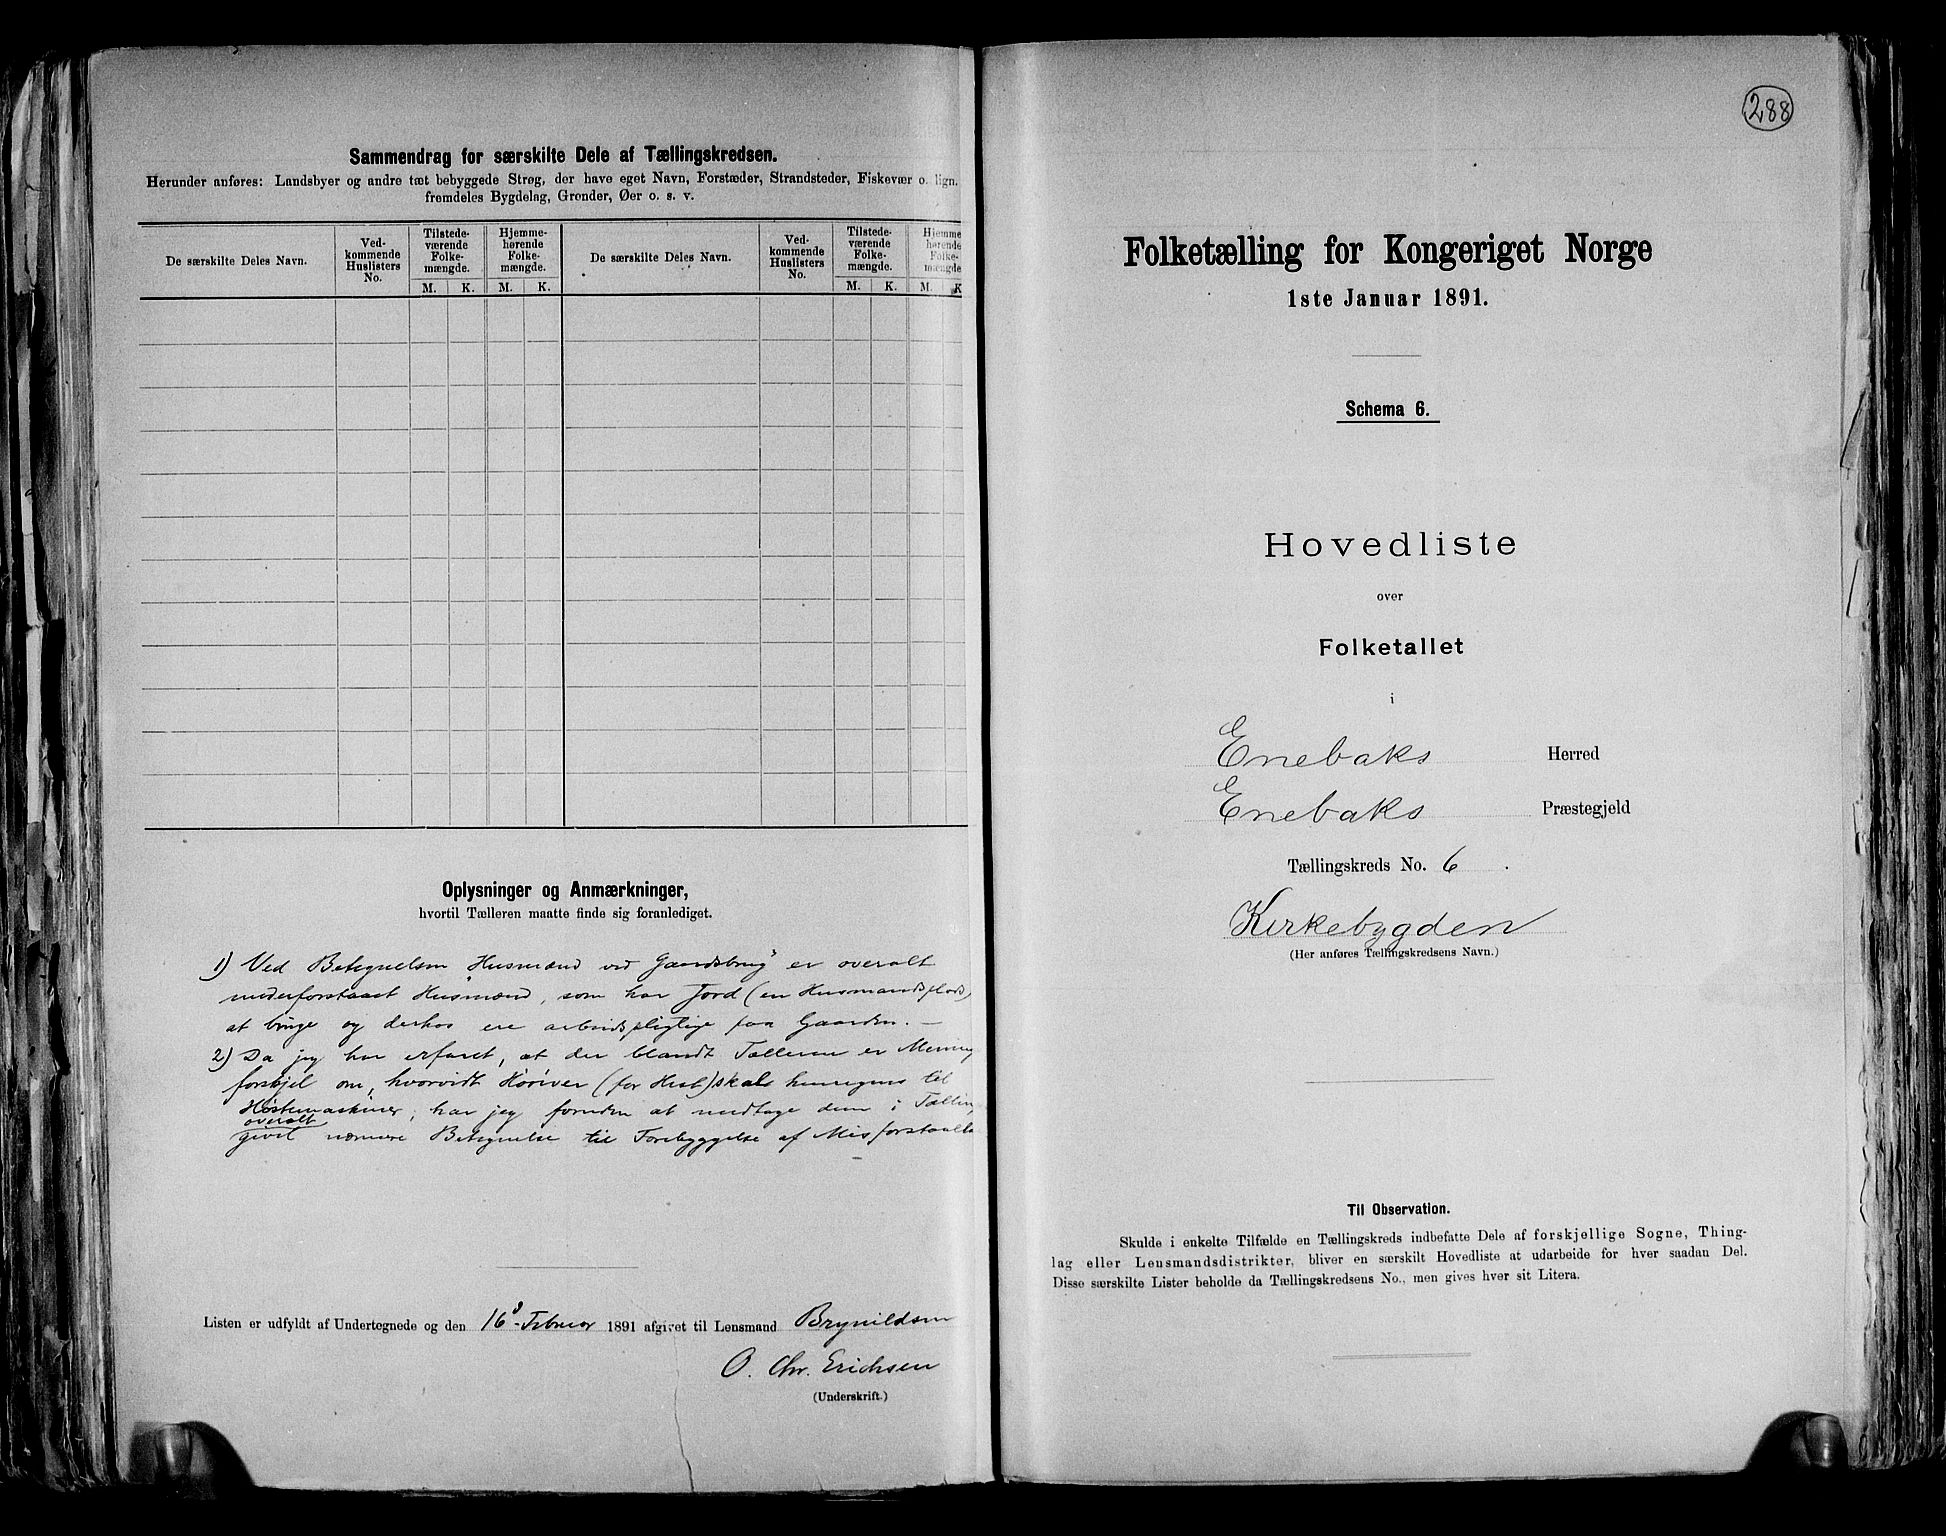 Sammendrag for særskilte Dele af Tællingskredsen.
Herunder anføres: Landsbyer og andre tæt bebyggede Strøg, der have eget Navn, Forstæder, Strandsteder, Fiskevær o. lign.
fremdeles Bygdelag, Grender, Øer o. s. v.
De særskilte Deles Navn.
Ved-
kommende
Huslisters
No.
Tilstede-
værende
Folke-
mængde.
M. K.
Hjemme-
hørende
Folke-
mængde.
M. K.
De særskilte Deles Navn.
Ved-
kommende
Huslisters
No.
Tilstede-
værende
Folke-
mængde.
M. K.
Hjemme
hørende
Folke-
mængd
M. K
Oplysninger og Anmærkninger,
hvortil Tælleren maatte finde sig foranlediget.
1) Ved Betegnelsen "Husmænd ved Gaardsbrug" er overalt
underforstaaet Husmænd, som har Jord (en Husmandsplads)
at bruge og derhos ere arbeidspligtige paa Gaarden. –
2) Da jeg har erfaret, at der blandt Tællerne er Menings
forskjel om, hvorvidt Høriver (for Hest) skals henregnes til
Høstemaskiner, har jeg foruden at medtage dem i Tælling
overalt
givet nærmere Betegnelse til Forebyggelse af Misforstaaelse
Listen er udfyldt af Undertegnede og den 16de Februar 1891 afgivet til Lensmand Brynildsen
O. Chr. Erichsen
(Underskrift.)
288
Folketælling for Kongeriget Norge
1ste Januar 1891.
Schema 6.
Hovedliste
over
Folketallet
i
Enebaks Herred
Enebaks Præstegjeld
Tællingskreds No. 6.
Kirkebygden
(Her anføres Tællingskredsens Navn.)
Til Observation.
Skulde i enkelte Tilfælde en Tællingskreds indbefatte Dele af forskjellige Sogne, Thing-
lag eller Lensmandsdistrikter, bliver en særskilt Hovedliste at udarbeide for hver saadan Del.
Disse særskilte Lister beholde da Tællingskredsens No., men gives hver sit Litera.